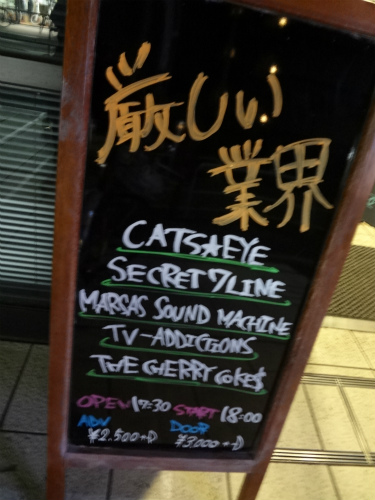 厳しい
業界
CATS★EYE
SECRET 7 LINE
MARSAS SOUND MACHINE
TV-ADDICTIONS
THE CHERRY COKE$
OPEN 17:30 START 18:00
ADV DOOR
¥2.500+D ¥3,000+D